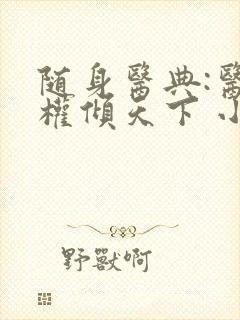 随身醫典:醫
權傾天下 小
野獸啊